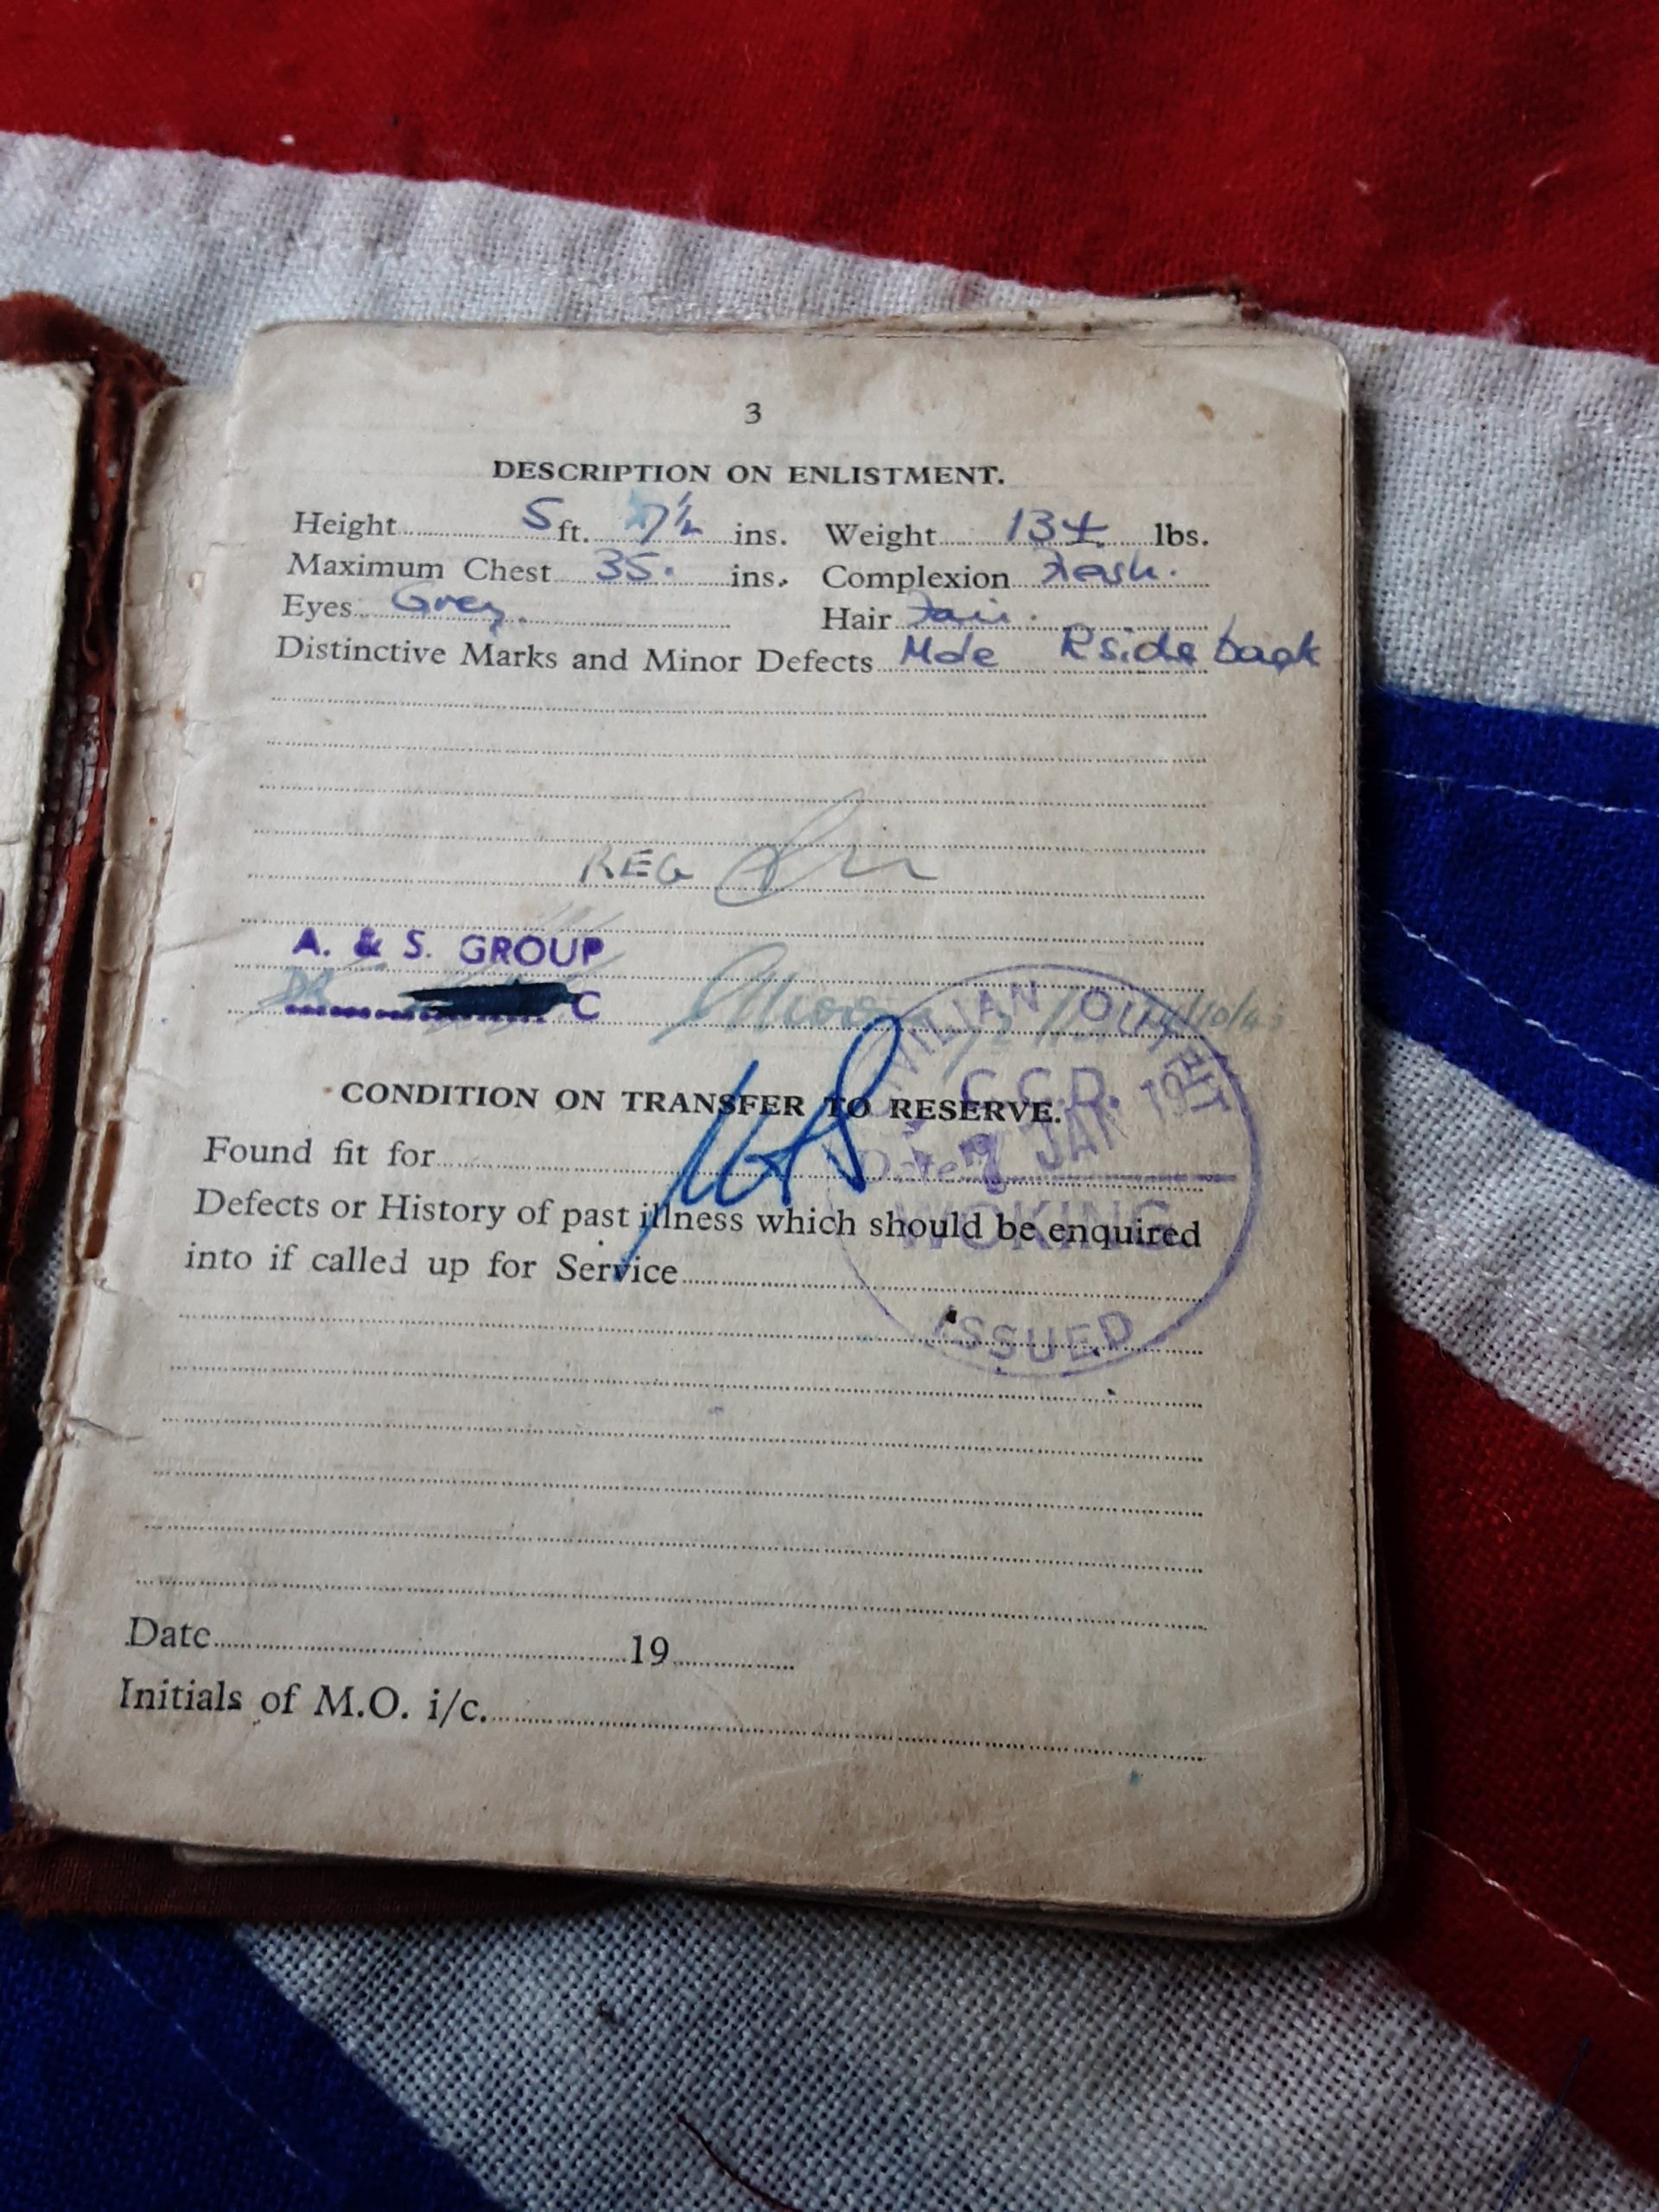 3
DESCRIPTION ON ENLISTMENT.
Height 5 ft. 7½ ins. Weight 134. lbs.
Maximum Chest 35. ins. Complexion Fresh.
Eyes Grey. Hair Fair.
Distinctive Marks and Minor Defects Mole R side back
REG
A. & S. GROUP
C
CIVILIAN OUTFIT
C.C.D.
CONDITION ON TRANSFER TO RESERVE.
Found fit for
Date 7 JAN
Defects or History of past illness which should be enquired
WOKING
into if called up for Service
ISSUED
Date 19
Initials of M.O. i/c.